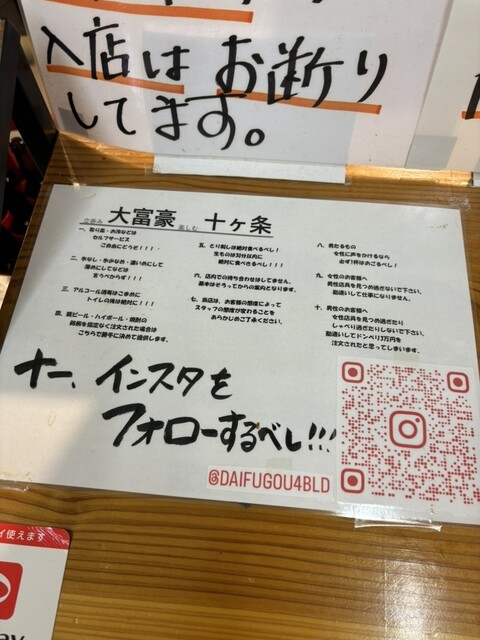 入店は お断り
してます。
立呑み 大富豪 楽しむ 十ヶ条
一、取り皿・お冷などは
セルフサービス
ご自由にどうぞ!!!
二、氷なし・氷少なめ・濃いめにして
薄めにしてなどは
言うべからず!!!
三、アルコール消毒はこまめに
トイレの後は絶対に!!!
四、瓶ビール・ハイボール・焼酎の
銘柄を指定なく注文された場合は
こちらで勝手に決めて提供します。
五、とり刺しは絶対食べるべし!
生ものは30分以内に
絶対に食べきるべし!!!
六、店内での待ち合わせはしてません。
基本はそろってからの案内となります。
七、当店は、お客様の態度によって
スタッフの態度が変わることを
あらかじめご了承ください。
八、男たるもの
女性に声をかけるなら
必ず1杯はおごるべし!
九、女性のお客様へ
男性店員を見つめ過ぎないで下さい。
勘違いして仕事になりません。
十、男性のお客様へ
女性店員を見つめ過ぎたり
しゃべり過ぎたりしないで下さい。
勘違いしてドンペリ3万円を
注文されたと思ってしまいます。
十一、インスタを
フォローするべし!!!
@DAIFUGOU4BLD
イ使えます
ay